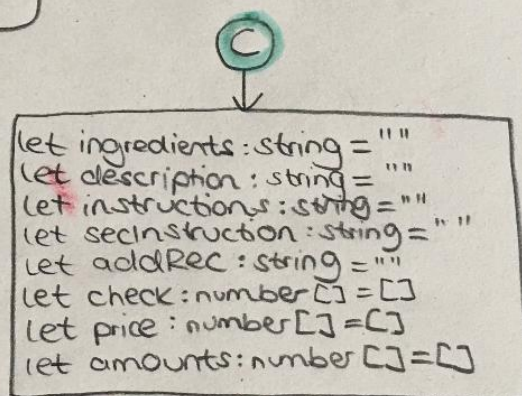 C
let ingredients: string = ""
let description: string = ""
let instructions: string = ""
let secInstruction: string = " "
let addRec: string = ""
let check: number [] = []
let price: number [] = []
let amounts: number [] = []